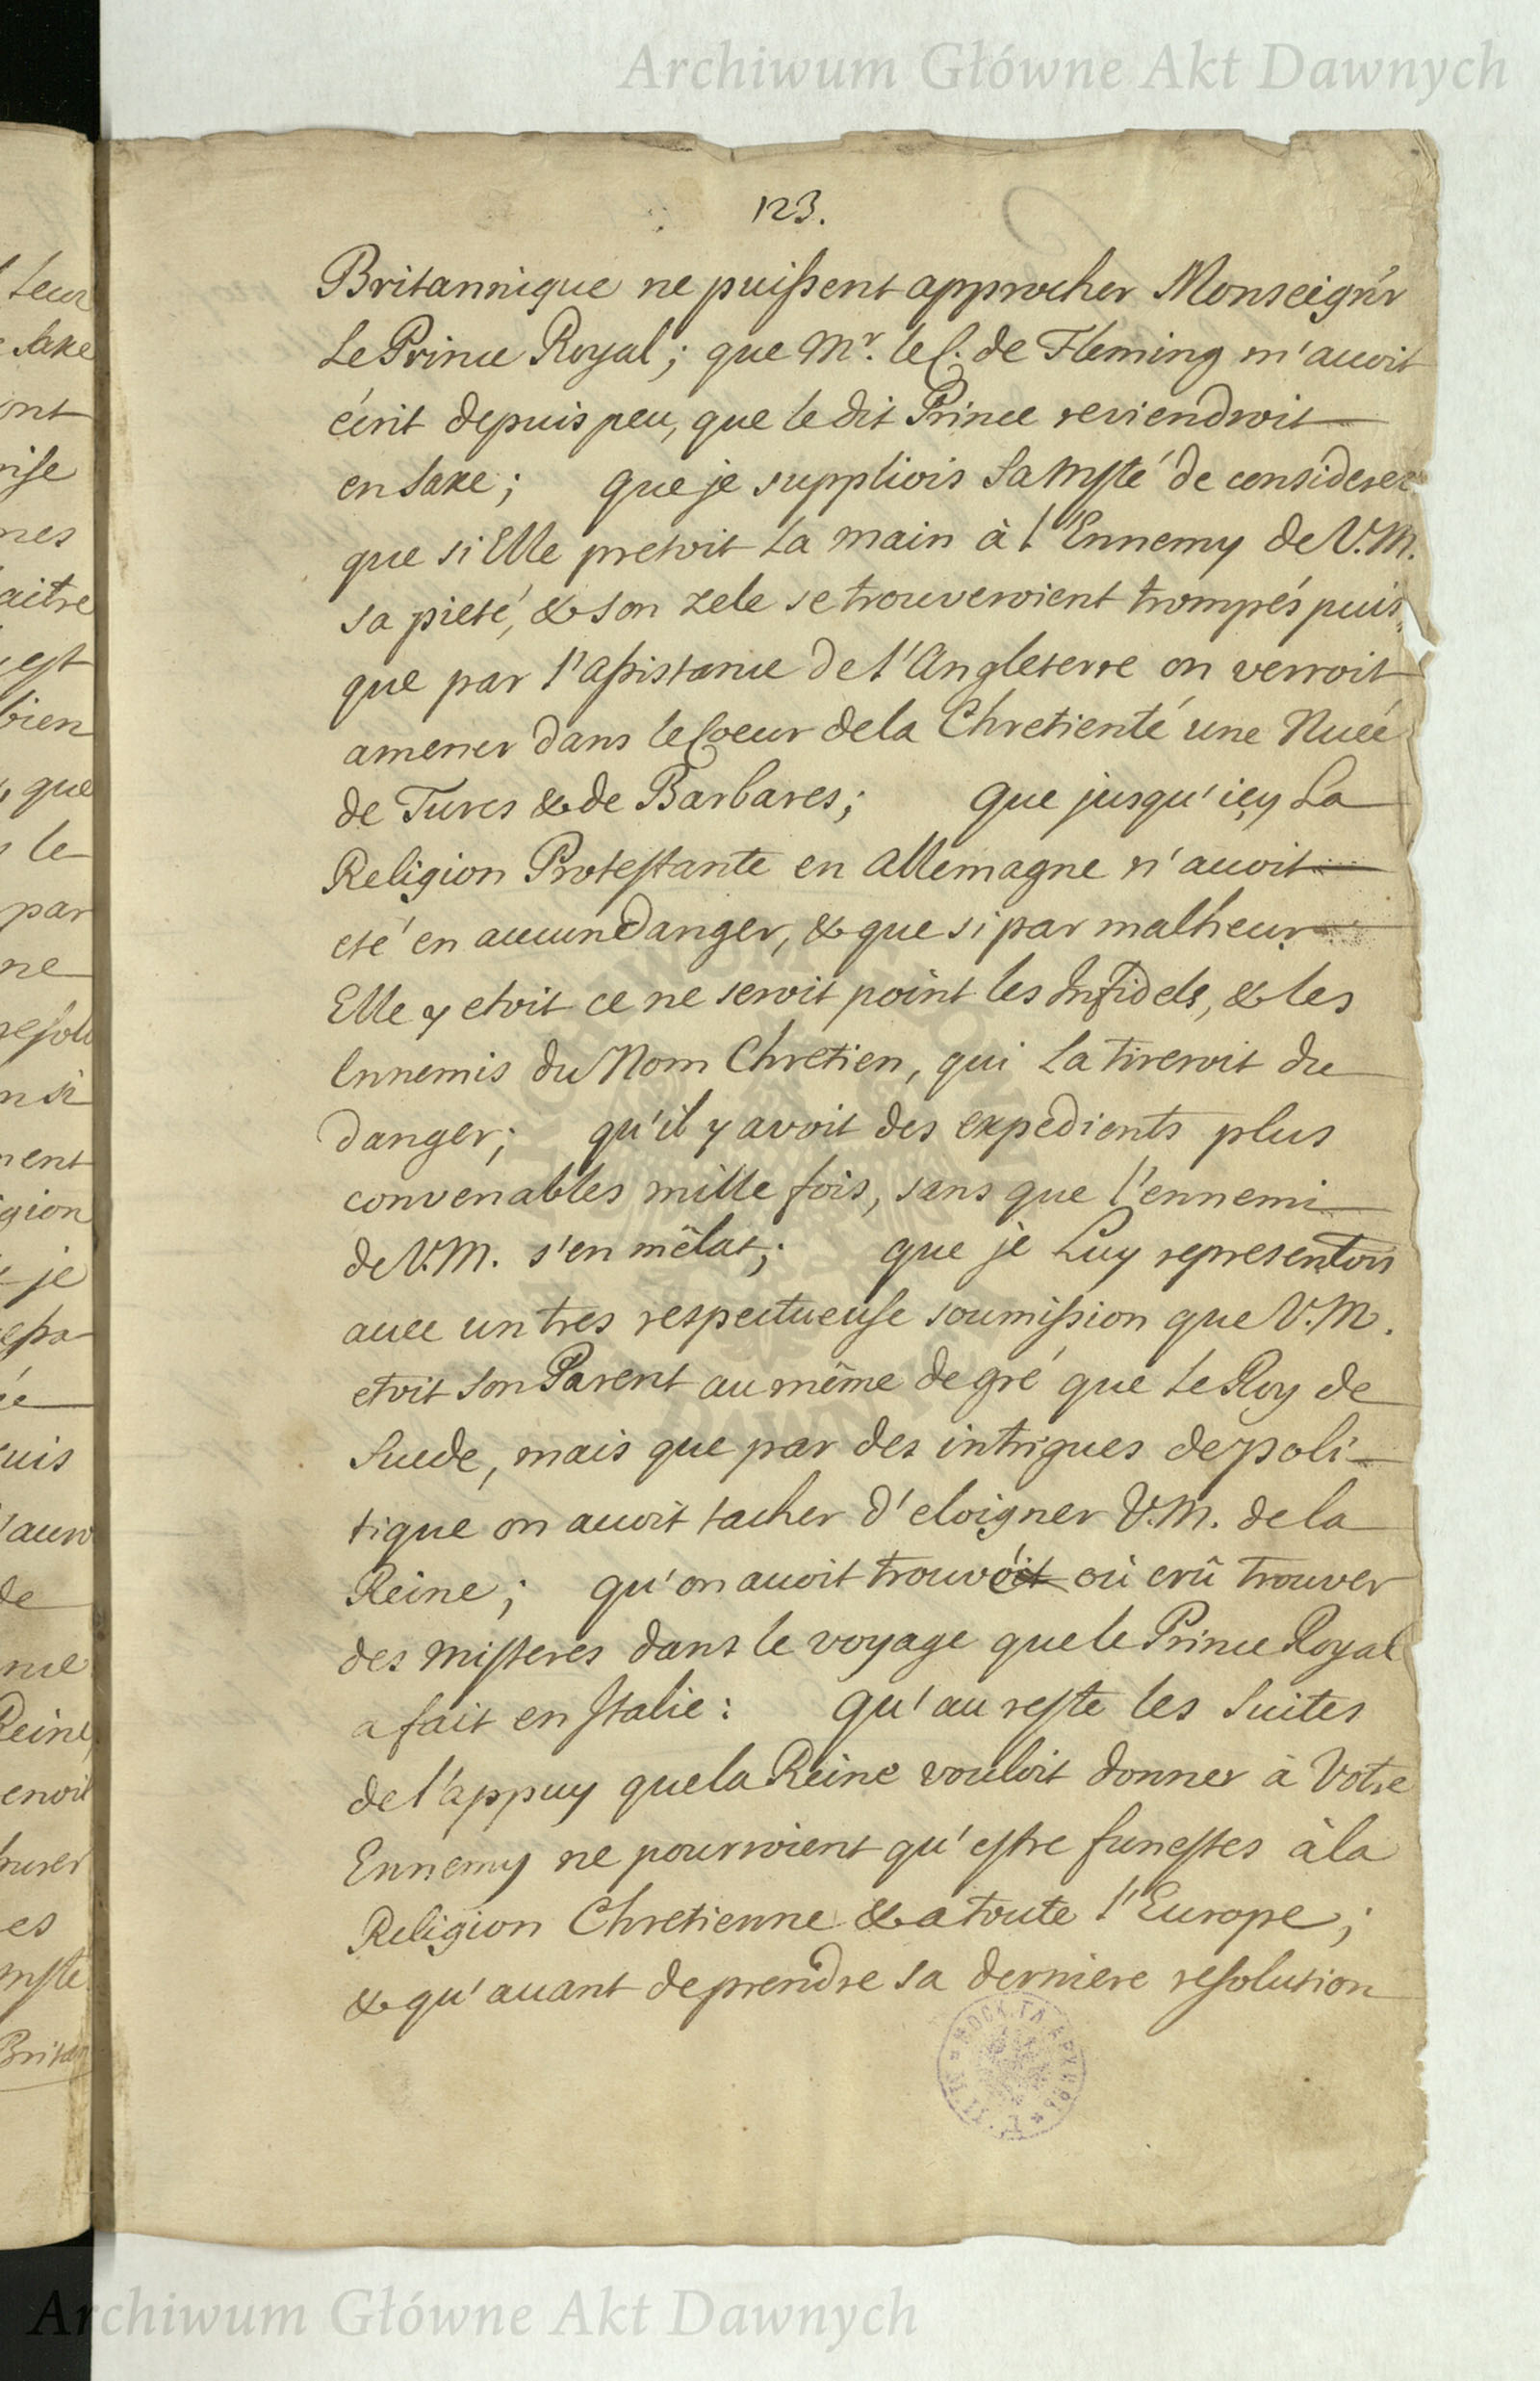 Archiwum Główne Akt Dawnych
123.
Britannique ne puissent approcher Monseign'r
Le Prince Royal; que Mr. le C. de Fleming m'auoit
écrit depuis peu, que le dit Prince reviendroit
en Saxe; que je suppliois Sa Msté de considerer
que si Elle pretoit La main à l'Ennemy de V.M.
sa pieté, & son zele se trouveroient trompés puis,
que par l'assistance de l'Angleterre on verroit
amener dans le Coeur de la Chretienté une Nuée
de Turcs & de Barbares; que jusqu'icy La
Religion Protestante en Allemagne n'auoit
eté en aucun Danger, & que si par malheur
Elle y etoit ce ne seroit point les Infidels, & les
Ennemis du Nom Chretien, qui La tireroit du
danger; qu'il y avoit des expedients plus
convenables mille fois, sans que l'ennemi
de V.M. s'en mêlat; que je Luy representois
auec un tres respectueuse soumission que V.M.
etoit Son Parent au même degré que Le Roy de
Suede, mais que par des intrigues de poli-
tique on auoit tacher d'eloigner V.M. de la
Reine; qu'on auoit trouvoit où crû trouver
des misteres dans le voyage que le Prince Royal
a fait en Italie: qu'au reste les Suites
de l'appuy que la Reine vouloit donner à Votre
Ennemy ne pourroient qu'estre funestes à la
Religion Chretienne & a toute l'Europe;
& qu'auant de prendre sa derniere resolution
Archiwum Główne Akt Dawnych